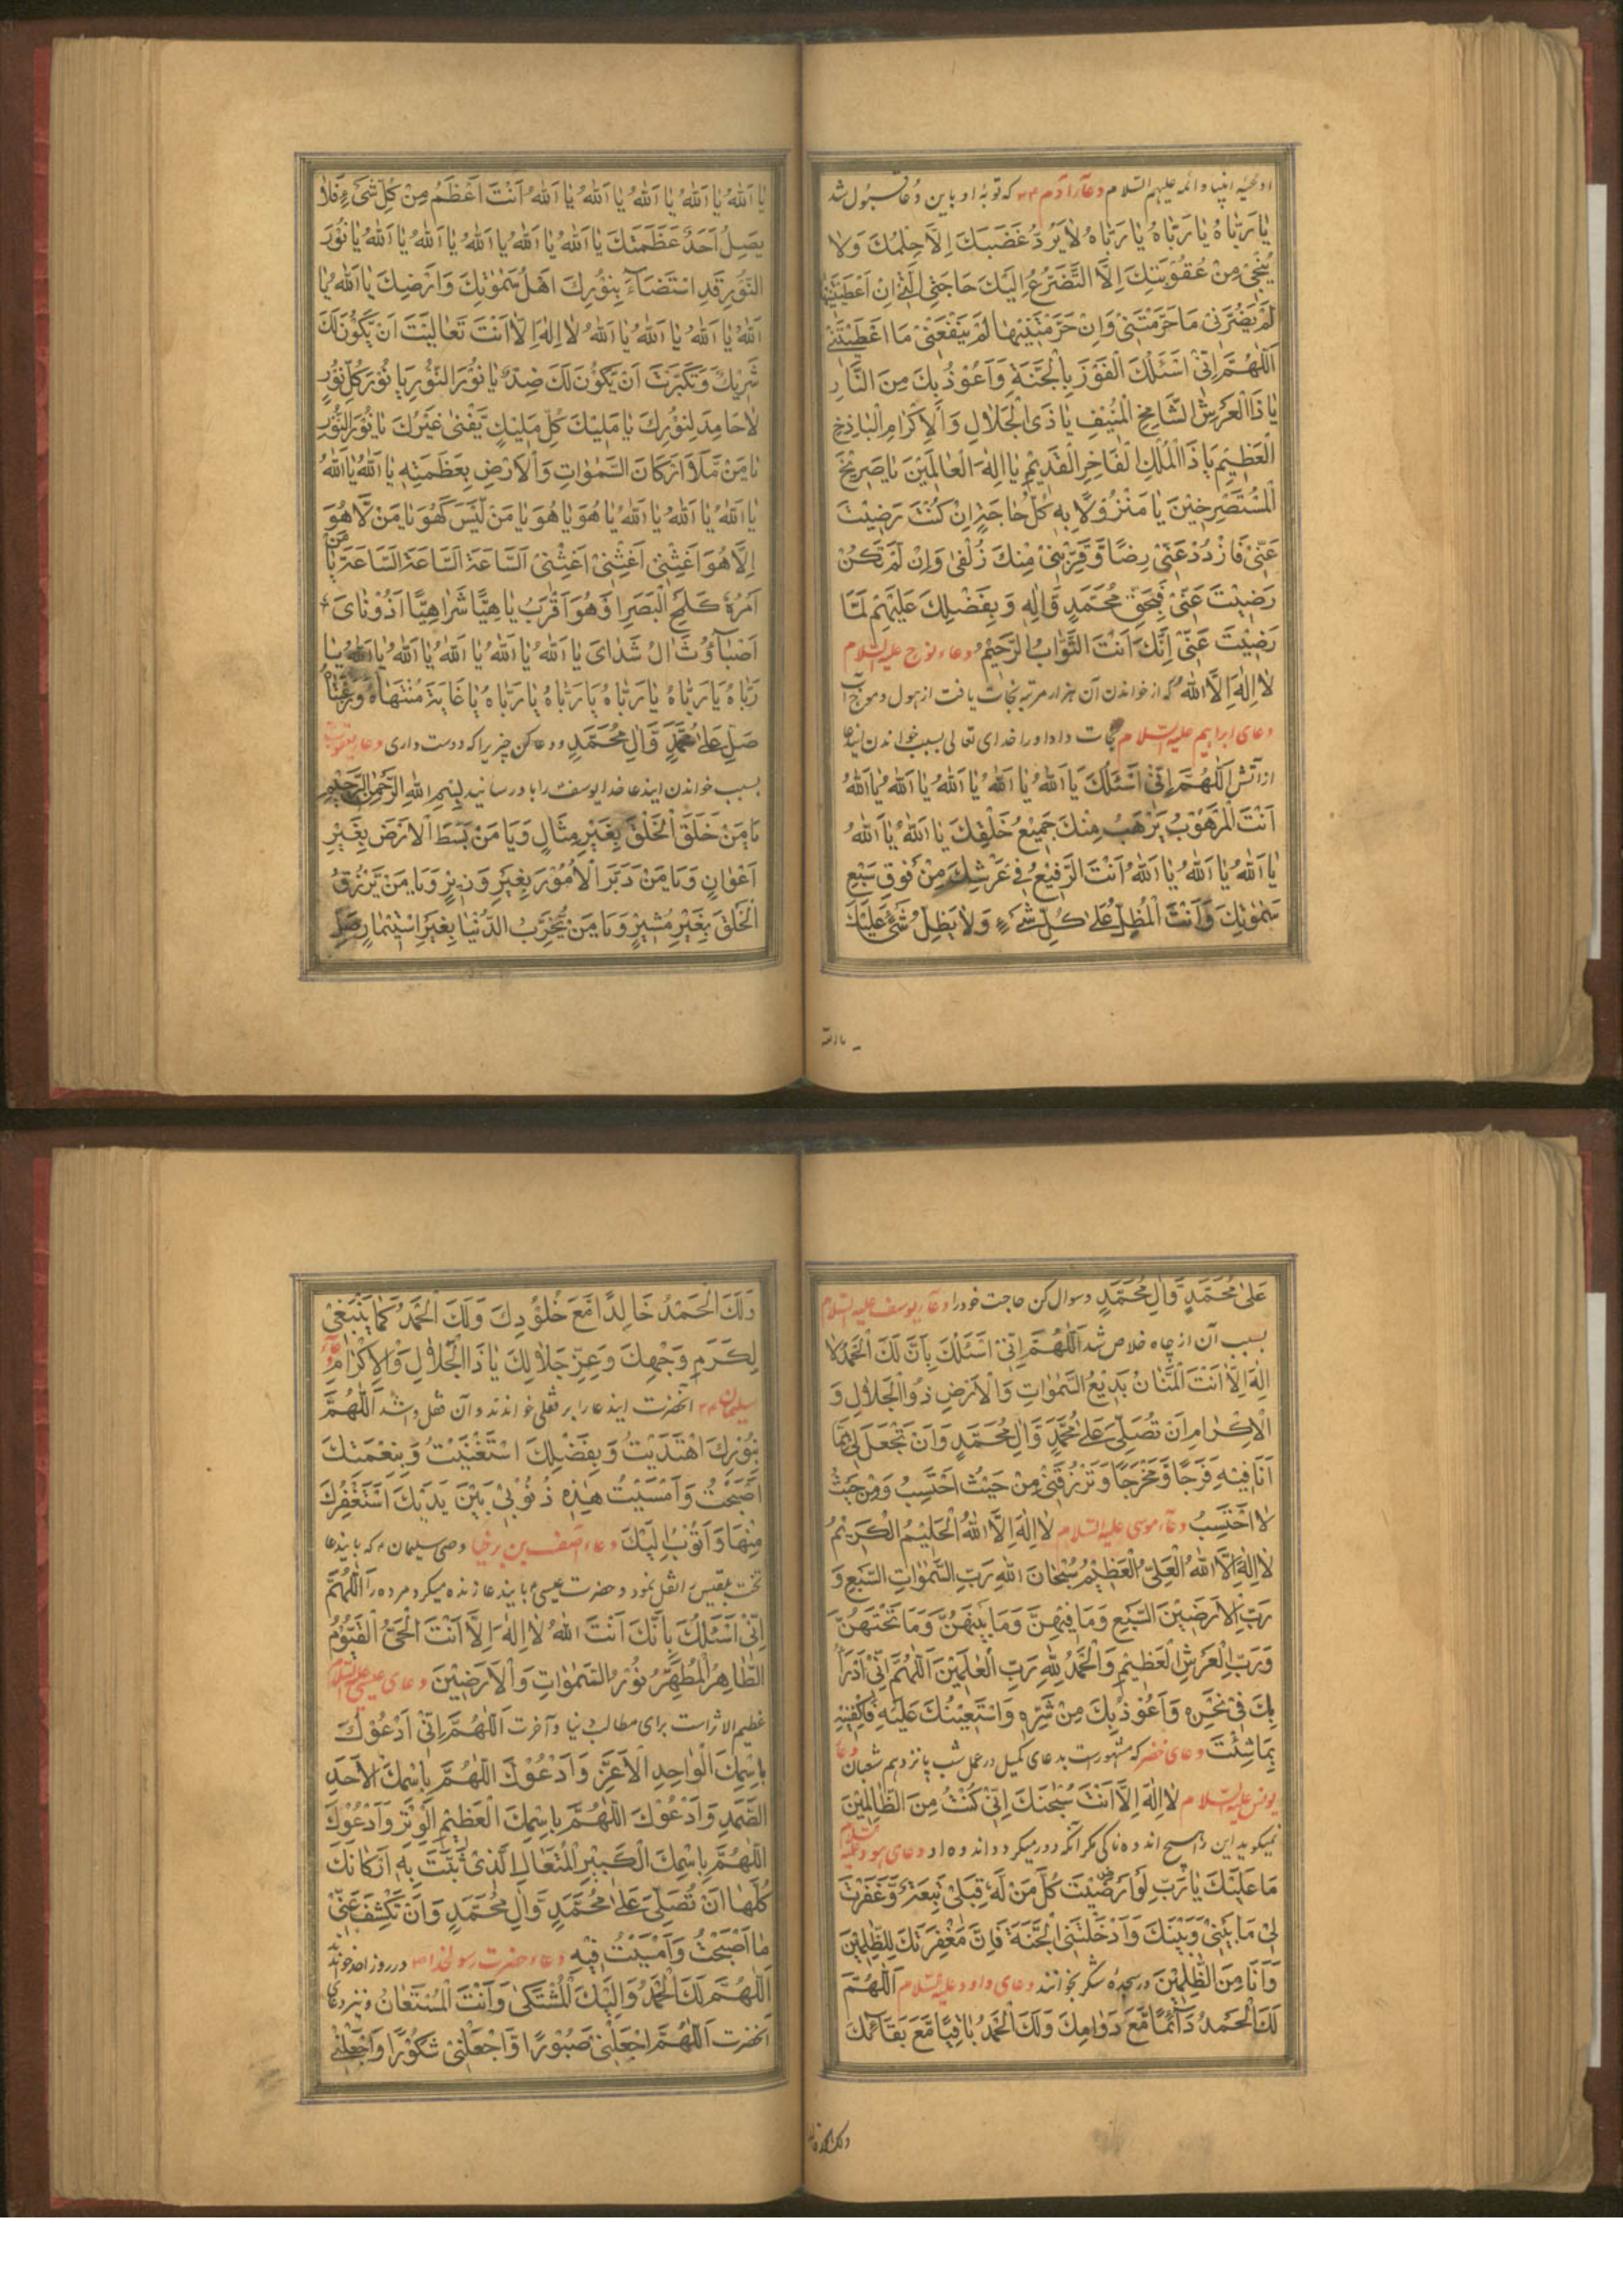 ادعیه انبیا و ائمه علیهم السلام دعاء آدم ع م که توبهٔ او باین دعا قبول شد
یَا رَبَّاهُ یَا رَبَّاهُ یَا رَبَّاهُ لَا یَرُدُّ غَضَبَکَ اِلَّا حِلْمُکَ وَلَا
یُنْجِیْ مِنْ عُقُوْبَتِکَ اِلَّا التَّضَرُّعُ اِلَیْکَ حَاجَتِی الَّتِیْ اِنْ اَعْطَیْتَنِیْهَا
لَمْ یَضُرَّنِیْ مَا حَرَمْتَنِیْ وَاِنْ حَرَمْتَنِیْهَا لَمْ یَنْفَعْنِیْ مَا اَعْطَیْتَنِیْ
اَللّٰهُمَّ اِنِّیْ اَسْئَلُکَ الْفَوْزَ بِالْجَنَّةِ وَاَعُوْذُ بِکَ مِنَ النَّارِ
یَا ذَا الْعَرْشِ الشَّامِخِ الْمُنِیْفِ یَا ذَی الْجَلَالِ وَالْاِکْرَامِ الْبَاذِخِ
الْعَظِیْمِ یَا ذَا الْمُلْکِ الْفَاخِرِ الْقَدِیْمِ یَا اِلٰهَ الْعَالَمِیْنَ یَا صَرِیْخَ
الْمُسْتَصْرِخِیْنَ یَا مَنْزُوْلًا بِهِ کُلُّ حَاجَةٍ اِنْ کُنْتَ رَضِیْتَ
عَنِّیْ فَازْدَدْ عَنِّیْ رِضًا وَّقَرِّبْنِیْ مِنْکَ زُلْفٰی وَاِنْ لَمْ تَکُنْ
رَضِیْتَ عَنِّیْ فَبِحَقِّ مُحَمَّدٍ وَّاٰلِهِ وَبِفَضْلِکَ عَلَیْهِمْ لَمَّا
رَضِیْتَ عَنِّیْ اِنَّکَ اَنْتَ التَّوَّابُ الرَّحِیْمُ دعاء نوح علیه السلام
لَا اِلٰهَ اِلَّا اللّٰهُ که از خواندن آن هزار مرتبه نجات یافت از هول و موج آب
دعای ابراهیم علیه السلام نجات داد او را خدای تعالی بسبب خواندن ایندعا
از آتش اَللّٰهُمَّ اِنِّیْ اَسْئَلُکَ یَا اَللّٰهُ یَا اَللّٰهُ یَا اَللّٰهُ یَا اَللّٰهُ یَا اَللّٰهُ
اَنْتَ الْمَرْهُوْبُ یَرْهَبُ مِنْکَ جَمِیْعُ خَلْقِکَ یَا اَللّٰهُ یَا اَللّٰهُ
یَا اَللّٰهُ یَا اَللّٰهُ یَا اَللّٰهُ اَنْتَ الرَّفِیْعُ فِیْ عَرْشِکَ مِنْ فَوْقِ سَبْعِ
سَمٰوٰتِکَ وَاَنْتَ الْمُظِلُّ عَلٰی کُلِّ شَیْءٍ وَلَا یُظِلُّ شَیْءٌ عَلَیْکَ
یا الله
یَا اَللّٰهُ یَا اَللّٰهُ یَا اَللّٰهُ یَا اَللّٰهُ یَا اَللّٰهُ اَنْتَ اَعْظَمُ مِنْ کُلِّ شَیْءٍ فَلَا
یَصِلُ اَحَدٌ عَظَمَتَکَ یَا اَللّٰهُ یَا اَللّٰهُ یَا اَللّٰهُ یَا اَللّٰهُ یَا اَللّٰهُ یَا نُوْرَ
النُّوْرِ قَدِ اسْتَضَآءَ بِنُوْرِکَ اَهْلُ سَمٰوٰتِکَ وَاَرْضِکَ یَا اَللّٰهُ یَا
اَللّٰهُ یَا اَللّٰهُ یَا اَللّٰهُ یَا اَللّٰهُ لَا اِلٰهَ اِلَّا اَنْتَ تَعَالَیْتَ اَنْ یَّکُوْنَ لَکَ
شَرِیْکٌ وَتَکَبَّرْتَ اَنْ یَّکُوْنَ لَکَ ضِدٌّ یَا نُوْرَ النُّوْرِ یَا نُوْرَ کُلِّ نُوْرٍ
لَا خَامِدَ لِنُوْرِکَ یَا مَلِیْکَ کُلِّ مَلِیْکٍ یَّفْنٰی غَیْرُکَ یَا نُوْرَ النُّوْرِ
یَا مَنْ مَّلَاَ اَرْکَانَ السَّمٰوٰاتِ وَالْاَرْضِ بِعَظَمَتِهِ یَا اَللّٰهُ یَا اَللّٰهُ
یَا اَللّٰهُ یَا اَللّٰهُ یَا اَللّٰهُ یَا هُوَ یَا هُوَ یَا مَنْ لَّیْسَ کَهُوَ یَا مَنْ لَّا هُوَ
اِلَّا هُوَ اَغِثْنِیْ اَغِثْنِیْ اَغِثْنِیْ اَلسَّاعَةَ اَلسَّاعَةَ اَلسَّاعَةَ یَا مَنْ
اَمْرُهُ کَلَمْحِ الْبَصَرِ اَوْ هُوَ اَقْرَبُ یَا هِیًّا شَرَاهِیًّا اَذُوْنَایَ
اَصْبَاؤُثَ اٰلُ شَدَایَ یَا اَللّٰهُ یَا اَللّٰهُ یَا اَللّٰهُ یَا اَللّٰهُ یَا اَللّٰهُ یَا
رَبَّاهُ یَا رَبَّاهُ یَا رَبَّاهُ یَا رَبَّاهُ یَا رَبَّاهُ یَا غَایَةَ مُنْتَهَاهُ وَرَغْبَتَاهُ
صَلِّ عَلٰی مُحَمَّدٍ وَّاٰلِ مُحَمَّدٍ ودعا کن چیزیرا که دوست داری دعاء یعقوب
بسبب خواندن ایندعا خدا یوسف را باو رسانید بِسْمِ اللّٰهِ الرَّحْمٰنِ الرَّحِیْمِ
یَا مَنْ خَلَقَ الْخَلْقَ بِغَیْرِ مِثَالٍ وَیَا مَنْ بَسَطَ الْاَرْضَ بِغَیْرِ
اَعْوَانٍ وَیَا مَنْ دَبَّرَ الْاُمُوْرَ بِغَیْرِ وَزِیْرٍ وَیَا مَنْ یَّرْزُقُ
الْخَلْقَ بِغَیْرِ مُشِیْرٍ وَیَا مَنْ یُّخَرِّبُ الدُّنْیَا بِغَیْرِ اسْتِیْمَارٍ صَلِّ
عَلٰی مُحَمَّدٍ وَّاٰلِ مُحَمَّدٍ وسوال کن حاجت خود را دعاء یوسف علیه السلام
بسبب آن از چاه خلاص شد اَللّٰهُمَّ اِنِّیْ اَسْئَلُکَ بِاَنَّ لَکَ الْحَمْدُ لَا
اِلٰهَ اِلَّا اَنْتَ الْمَنَّانُ بَدِیْعُ السَّمٰوٰاتِ وَالْاَرْضِ ذُوالْجَلَالِ وَ
الْاِکْرَامِ اَنْ تُصَلِّیَ عَلٰی مُحَمَّدٍ وَّاٰلِ مُحَمَّدٍ وَاَنْ تَجْعَلَ لِیْ مِمَّا
اَنَا فِیْهِ فَرَجًا وَّمَخْرَجًا وَتَرْزُقَنِیْ مِنْ حَیْثُ اَحْتَسِبُ وَمِنْ حَیْثُ
لَا اَحْتَسِبُ دعاء موسی علیه السلام لَا اِلٰهَ اِلَّا اللّٰهُ الْحَلِیْمُ الْکَرِیْمُ
لَا اِلٰهَ اِلَّا اللّٰهُ الْعَلِیُّ الْعَظِیْمُ سُبْحَانَ اللّٰهِ رَبِّ السَّمٰوٰاتِ السَّبْعِ وَ
رَبِّ الْاَرَضِیْنَ السَّبْعِ وَمَا فِیْهِنَّ وَمَا بَیْنَهُنَّ وَمَا تَحْتَهُنَّ
وَرَبِّ الْعَرْشِ الْعَظِیْمِ وَالْحَمْدُ لِلّٰهِ رَبِّ الْعٰلَمِیْنَ اَللّٰهُمَّ اِنِّیْ اَدْرَاُ
بِکَ فِیْ نَحْرِهِ وَاَعُوْذُ بِکَ مِنْ شَرِّهِ وَاسْتَعِیْنُکَ عَلَیْهِ فَاکْفِنِیْهِ
بِمَا شِئْتَ دعای خضر که مشهور است بدعای کمیل در عمل شب پانزدهم شعبان دعاء
یونس علیه السلام لَا اِلٰهَ اِلَّا اَنْتَ سُبْحٰنَکَ اِنِّیْ کُنْتُ مِنَ الظَّالِمِیْنَ
نمیگوید این را هیچ اندوه ناکی مگر آنکه دور میکرد اندوه او دعای هود علیه السلام
مَا عَلَیْکَ یَا رَبِّ لَوْ اَرْضَیْتَ کُلَّ مَنْ لَهُ قِبَلِیْ تَبِعَةٌ وَّغَفَرْتَ
لِیْ مَا بَیْنِیْ وَبَیْنَکَ وَاَدْخَلْتَنِی الْجَنَّةَ فَاِنَّ مَغْفِرَتَکَ لِلظّٰلِمِیْنَ
وَاَنَا مِنَ الظّٰلِمِیْنَ در سجدهٔ شکر بخوانند دعای داود علیه السلام اَللّٰهُمَّ
لَکَ الْحَمْدُ دَآئِمًا مَّعَ دَوَامِکَ وَلَکَ الْحَمْدُ بَاقِیًا مَّعَ بَقَائِکَ
ولک الحمد خا
وَلَکَ الْحَمْدُ خَالِدًا مَّعَ خُلُوْدِکَ وَلَکَ الْحَمْدُ کَمَا یَنْبَغِیْ
لِکَرَمِ وَجْهِکَ وَعِزِّ جَلَالِکَ یَا ذَاالْجَلَالِ وَالْاِکْرَامِ دعاء
سلیمان ع م آنحضرت ایندعا را بر قفلی خواندند و آن قفل وا شد اَللّٰهُمَّ
بِنُوْرِکَ اهْتَدَیْتُ وَبِفَضْلِکَ اسْتَغْنَیْتُ وَبِنِعْمَتِکَ
اَصْبَحْتُ وَاَمْسَیْتُ هٰذِهِ ذُنُوْبِیْ بَیْنَ یَدَیْکَ اَسْتَغْفِرُکَ
مِنْهَا وَاَتُوْبُ اِلَیْکَ دعاء آصف بن برخیا وصی سلیمان ع که بایندعا
تخت بلقیس را نقل نمود و حضرت عیسی بایندعا زنده میکرد مرده را اَللّٰهُمَّ
اِنِّیْ اَسْئَلُکَ بِاَنَّکَ اَنْتَ اللّٰهُ لَا اِلٰهَ اِلَّا اَنْتَ الْحَیُّ الْقَیُّوْمُ
الطَّاهِرُ الْمُطَهَّرُ نُوْرُ السَّمٰوٰاتِ وَالْاَرَضِیْنَ دعای عیسی علیه السلام
عظیم الاثر است برای مطالب دنیا و آخرت اَللّٰهُمَّ اِنِّیْ اَدْعُوْکَ
بِاسْمِکَ الْوَاحِدِ الْاَعَزِّ وَاَدْعُوْکَ اَللّٰهُمَّ بِاسْمِکَ الْاَحَدِ
الصَّمَدِ وَاَدْعُوْکَ اَللّٰهُمَّ بِاسْمِکَ الْعَظِیْمِ الْوَتْرِ وَاَدْعُوْکَ
اَللّٰهُمَّ بِاسْمِکَ الْکَبِیْرِ الْمُتَعَالِ الَّذِیْ ثَبَتَتْ بِهِ اَرْکَانُکَ
کُلُّهَا اَنْ تُصَلِّیَ عَلٰی مُحَمَّدٍ وَّاٰلِ مُحَمَّدٍ وَاَنْ تَکْشِفَ عَنِّیْ
مَا اَصْبَحْتُ وَاَمْسَیْتُ فِیْهِ دعاء حضرت رسولخدا ص در روز احد خواندند
اَللّٰهُمَّ لَکَ الْحَمْدُ وَاِلَیْکَ الْمُشْتَکٰی وَاَنْتَ الْمُسْتَعَانُ ونیز دعای
آنحضرت اَللّٰهُمَّ اجْعَلْنِیْ صَبُوْرًا وَّاجْعَلْنِیْ شَکُوْرًا وَّاجْعَلْنِیْ